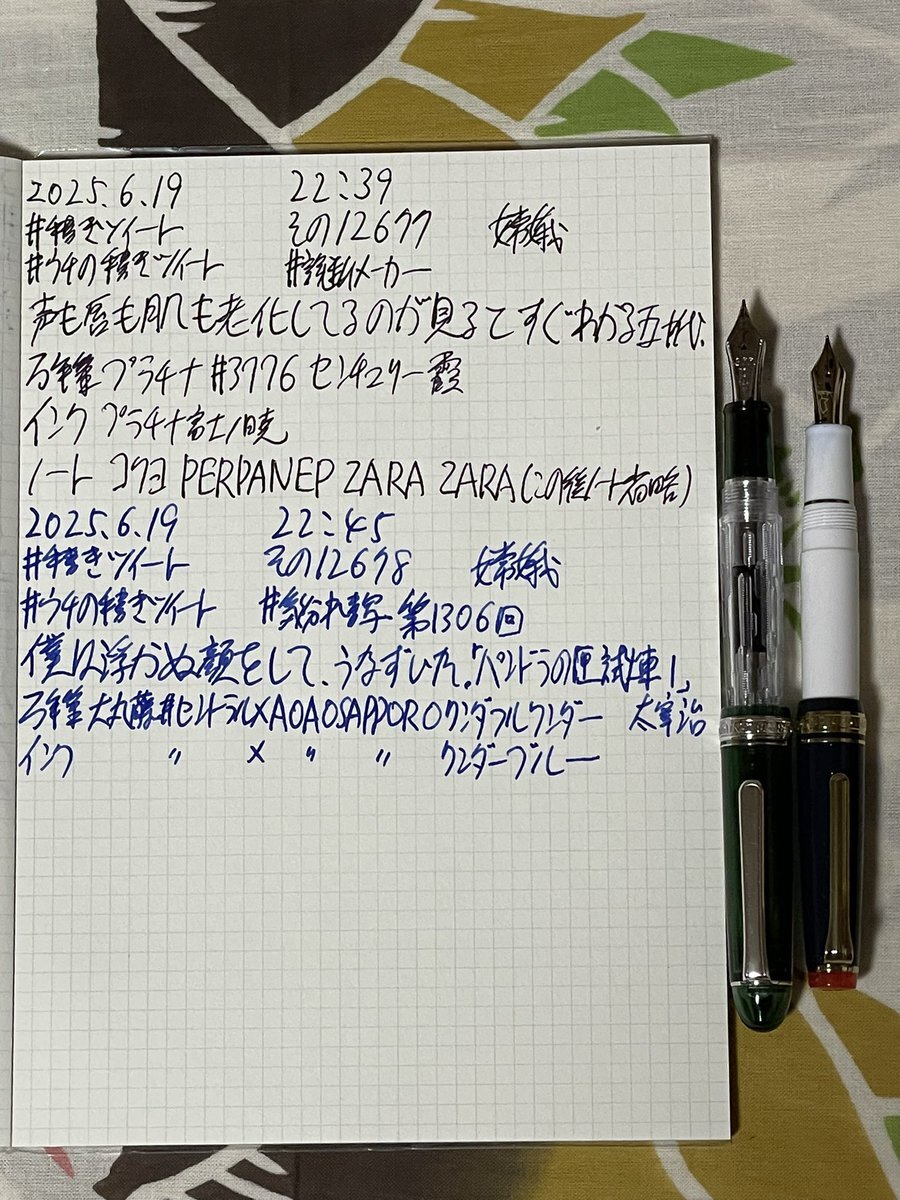 2025.6.19 22:39
#手書きツイート その12677 嫦娥
#ウチの手書きツイート #診断メーカー
声も唇も肌も老化してるのが見るとすぐわかる五十代、
万年筆 プラチナ #3776 センチュリー 霞
インク プラチナ 富士ノ暁
ノート コクヨ PERPANEP ZARA ZARA (この後ノート省略)
2025.6.19 22:45
#手書きツイート その12678 嫦娥
#ウチの手書きツイート #気分れ書写 第1306回
僕は浮かぬ顔をして、うなずいた。「パンドラの匣 試煉1」
万年筆 大丸藤井セントラル×AOAOSAPPOROワンダフルワンダー 太宰治
インク 〃 × 〃 〃 ワンダーブルー